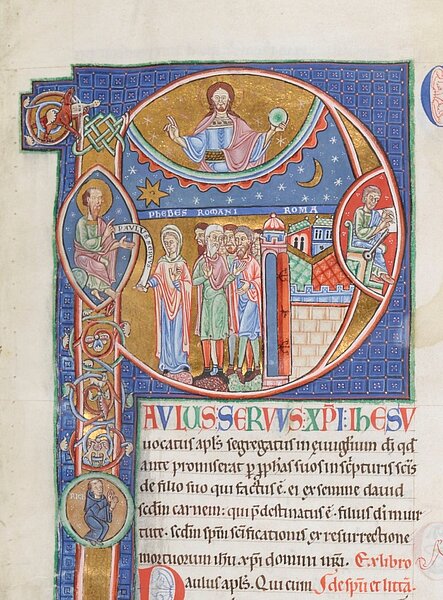 PHEBES ROMANI ROMA
PAVLVS SERVVS
AVLUS: SERVVS: XP̄I IHESV
uocatus apl̄s segregatus in euuḡlium dī qd̄
ante promiserat p̲ p̄phās suos in sc̄pturis sc̄is
de filio suo qui factus ē ei ex semine dauid
sc̄dm carnem: qui p̄destinatus ē filius dī in uir
tute. sc̄dm sp̄m sc̄ificationis ex resurrectione
mortuorum ihū xp̄i domini nr̄i. Ex libro
Paulus apl̄s. Qui cum J de sp̄u et litt̄a.
RICH